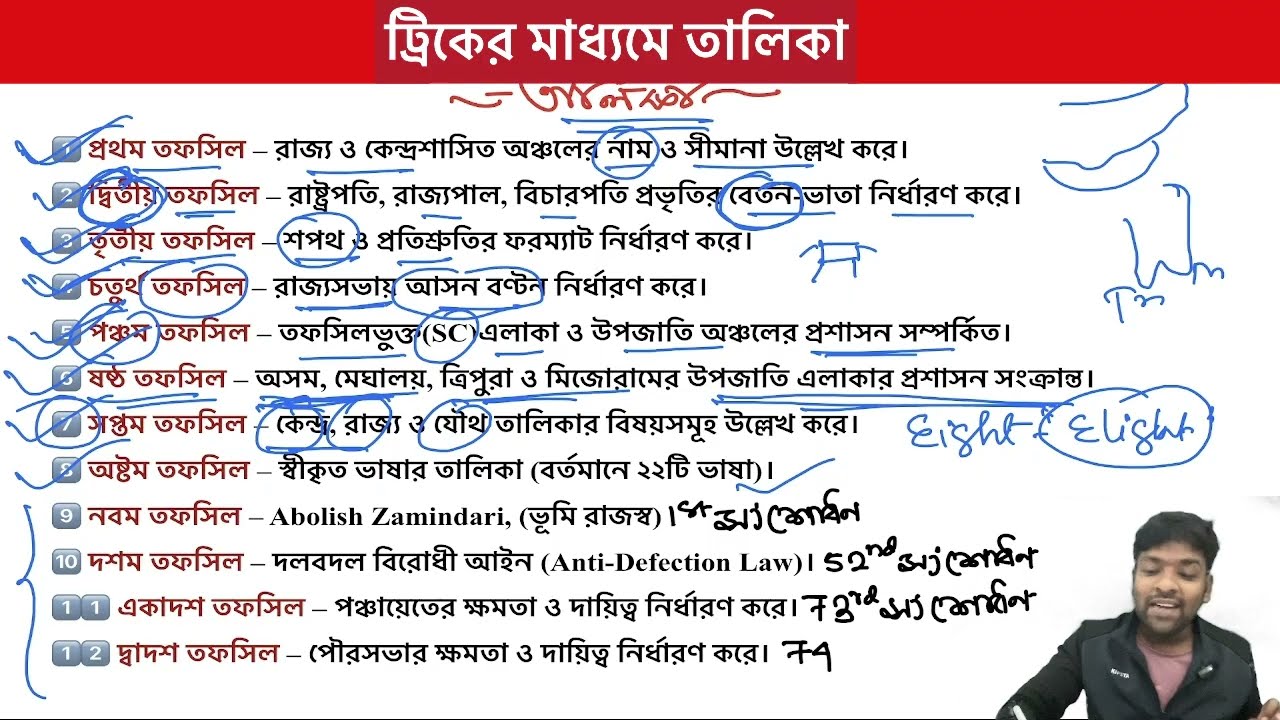 ট্রিকের মাধ্যমে তালিকা
1 প্রথম তফসিল – রাজ্য ও কেন্দ্রশাসিত অঞ্চলের নাম ও সীমানা উল্লেখ করে।
2 দ্বিতীয় তফসিল – রাষ্ট্রপতি, রাজ্যপাল, বিচারপতি প্রভৃতির বেতন-ভাতা নির্ধারণ করে।
3 তৃতীয় তফসিল – শপথ ও প্রতিশ্রুতির ফরম্যাট নির্ধারণ করে।
4 চতুর্থ তফসিল – রাজ্যসভায় আসন বণ্টন নির্ধারণ করে।
5 পঞ্চম তফসিল – তফসিলভুক্ত(SC) এলাকা ও উপজাতি অঞ্চলের প্রশাসন সম্পর্কিত।
6 ষষ্ঠ তফসিল – অসম, মেঘালয়, ত্রিপুরা ও মিজোরামের উপজাতি এলাকার প্রশাসন সংক্রান্ত।
7 সপ্তম তফসিল – কেন্দ্র, রাজ্য ও যৌথ তালিকার বিষয়সমূহ উল্লেখ করে। Eight
8 অষ্টম তফসিল – স্বীকৃত ভাষার তালিকা (বর্তমানে ২২টি ভাষা)।
9 নবম তফসিল – Abolish Zamindari, (ভূমি রাজস্ব) 1st সংশোধন
10 দশম তফসিল – দলবদল বিরোধী আইন (Anti-Defection Law)। 52nd সংশোধন
11 একাদশ তফসিল – পঞ্চায়েতের ক্ষমতা ও দায়িত্ব নির্ধারণ করে। 73rd সংশোধন
12 দ্বাদশ তফসিল – পৌরসভার ক্ষমতা ও দায়িত্ব নির্ধারণ করে। 74